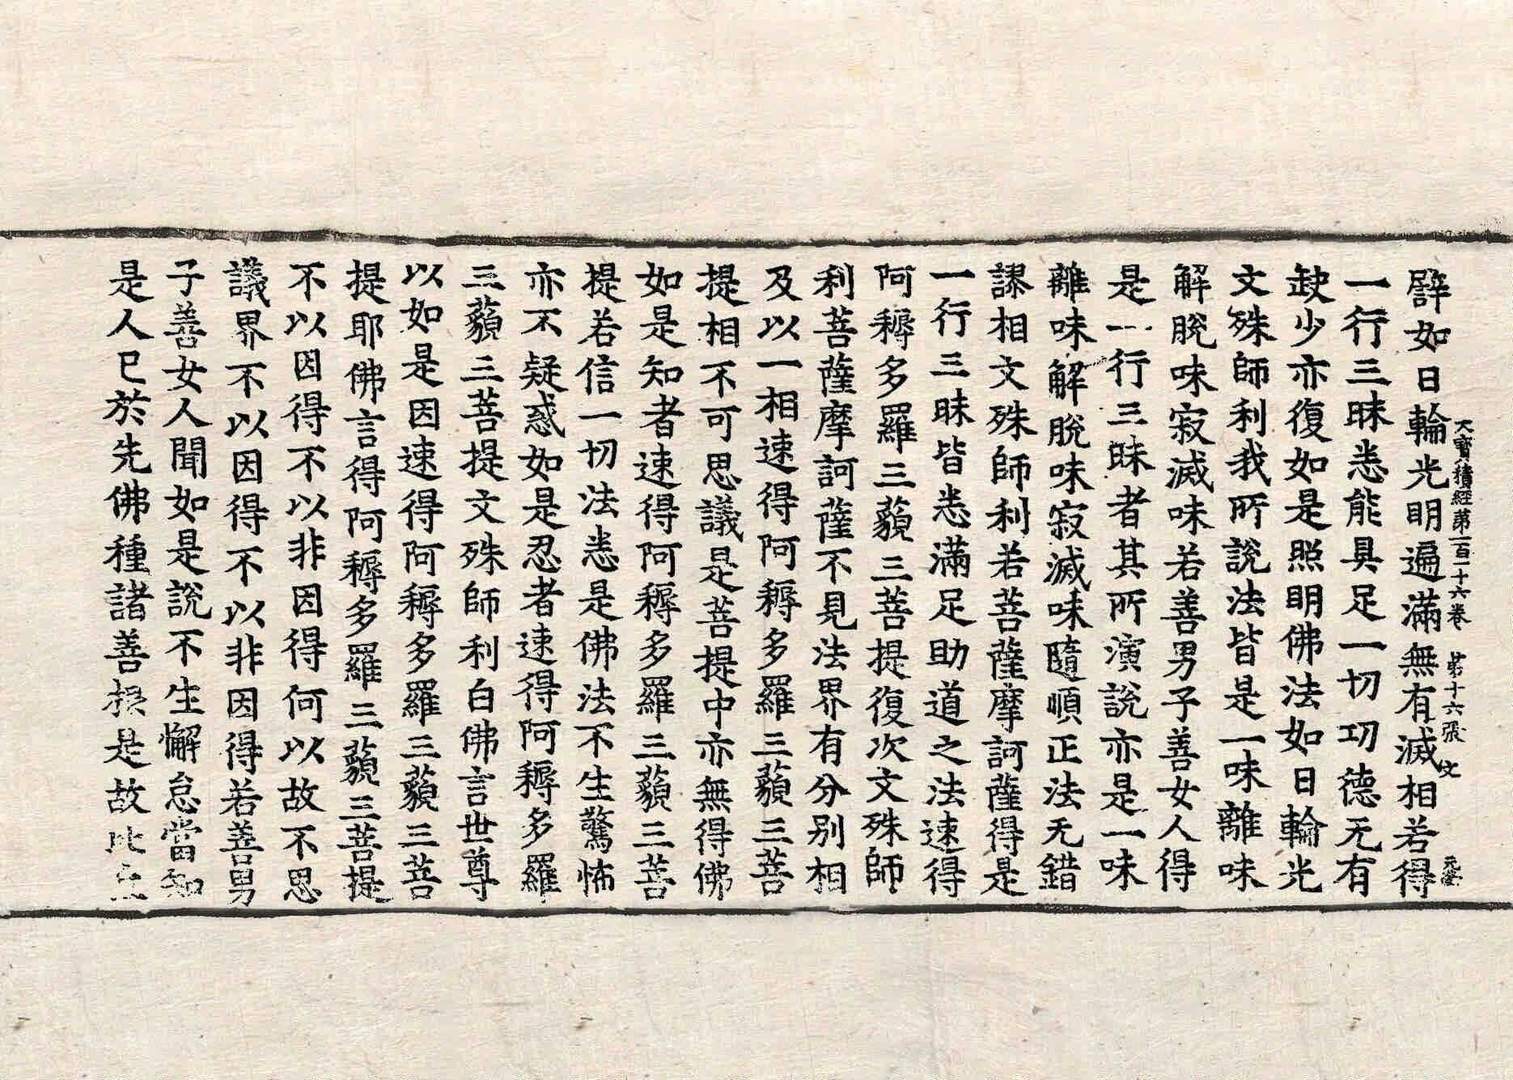 大寳積經第一百一十六卷　第十六張　文
譬如日輪光明遍滿無有滅相若得
一行三昧悉能具足一切功德无有
缺少亦復如是照明佛法如日輪光
文殊師利我所說法皆是一味離味
解脫味寂滅味若善男子善女人得
是一行三昧者其所演說亦是一味
離味解脫味寂滅味隨順正法无錯
謬相文殊師利若菩薩摩訶薩得是
一行三昧皆悉滿足助道之法速得
阿耨多羅三藐三菩提復次文殊師
利菩薩摩訶薩不見法界有分別相
及以一相速得阿耨多羅三藐三菩
提相不可思議是菩提中亦無得佛
如是知者速得阿耨多羅三藐三菩
提若信一切法悉是佛法不生驚怖
亦不疑惑如是忍者速得阿耨多羅
三藐三菩提文殊師利白佛言世尊
以如是因速得阿耨多羅三藐三菩
提耶佛言得阿耨多羅三藐三菩提
不以因得不以非因得何以故不思
議界不以因得不以非因得若善男
子善女人聞如是說不生懈怠當知
是人已於先佛種諸善根是故比丘